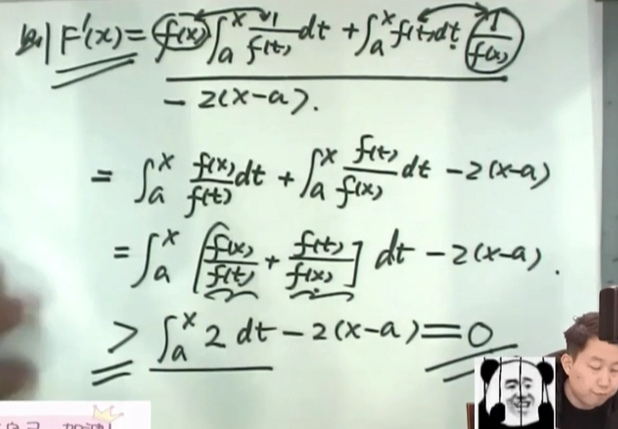 则 F'(x) = f(x) ∫ₐˣ 1/f(t) dt + ∫ₐˣ f(t)dt · 1/f(x)
− 2(x−a).
= ∫ₐˣ f(x)/f(t) dt + ∫ₐˣ f(t)/f(x) dt − 2(x−a)
= ∫ₐˣ [f(x)/f(t) + f(t)/f(x)] dt − 2(x−a).
≥ ∫ₐˣ 2 dt − 2(x−a) = 0